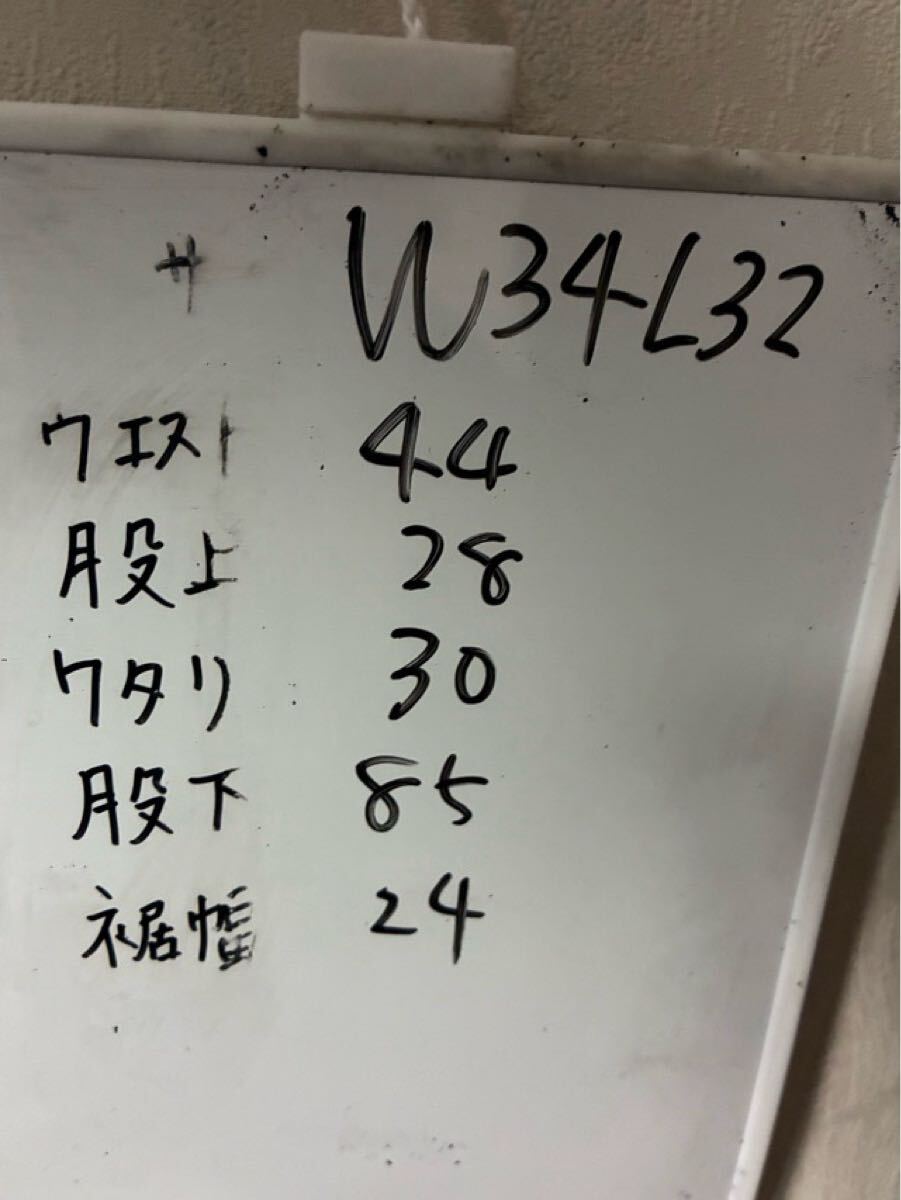 サ W34L32
ウエスト 44
股上 28
ワタリ 30
股下 85
裾幅 24